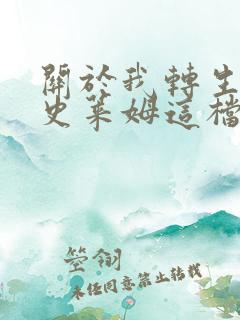 關於我轉生
史萊姆這檔
筌翎
未經同意禁止轉載